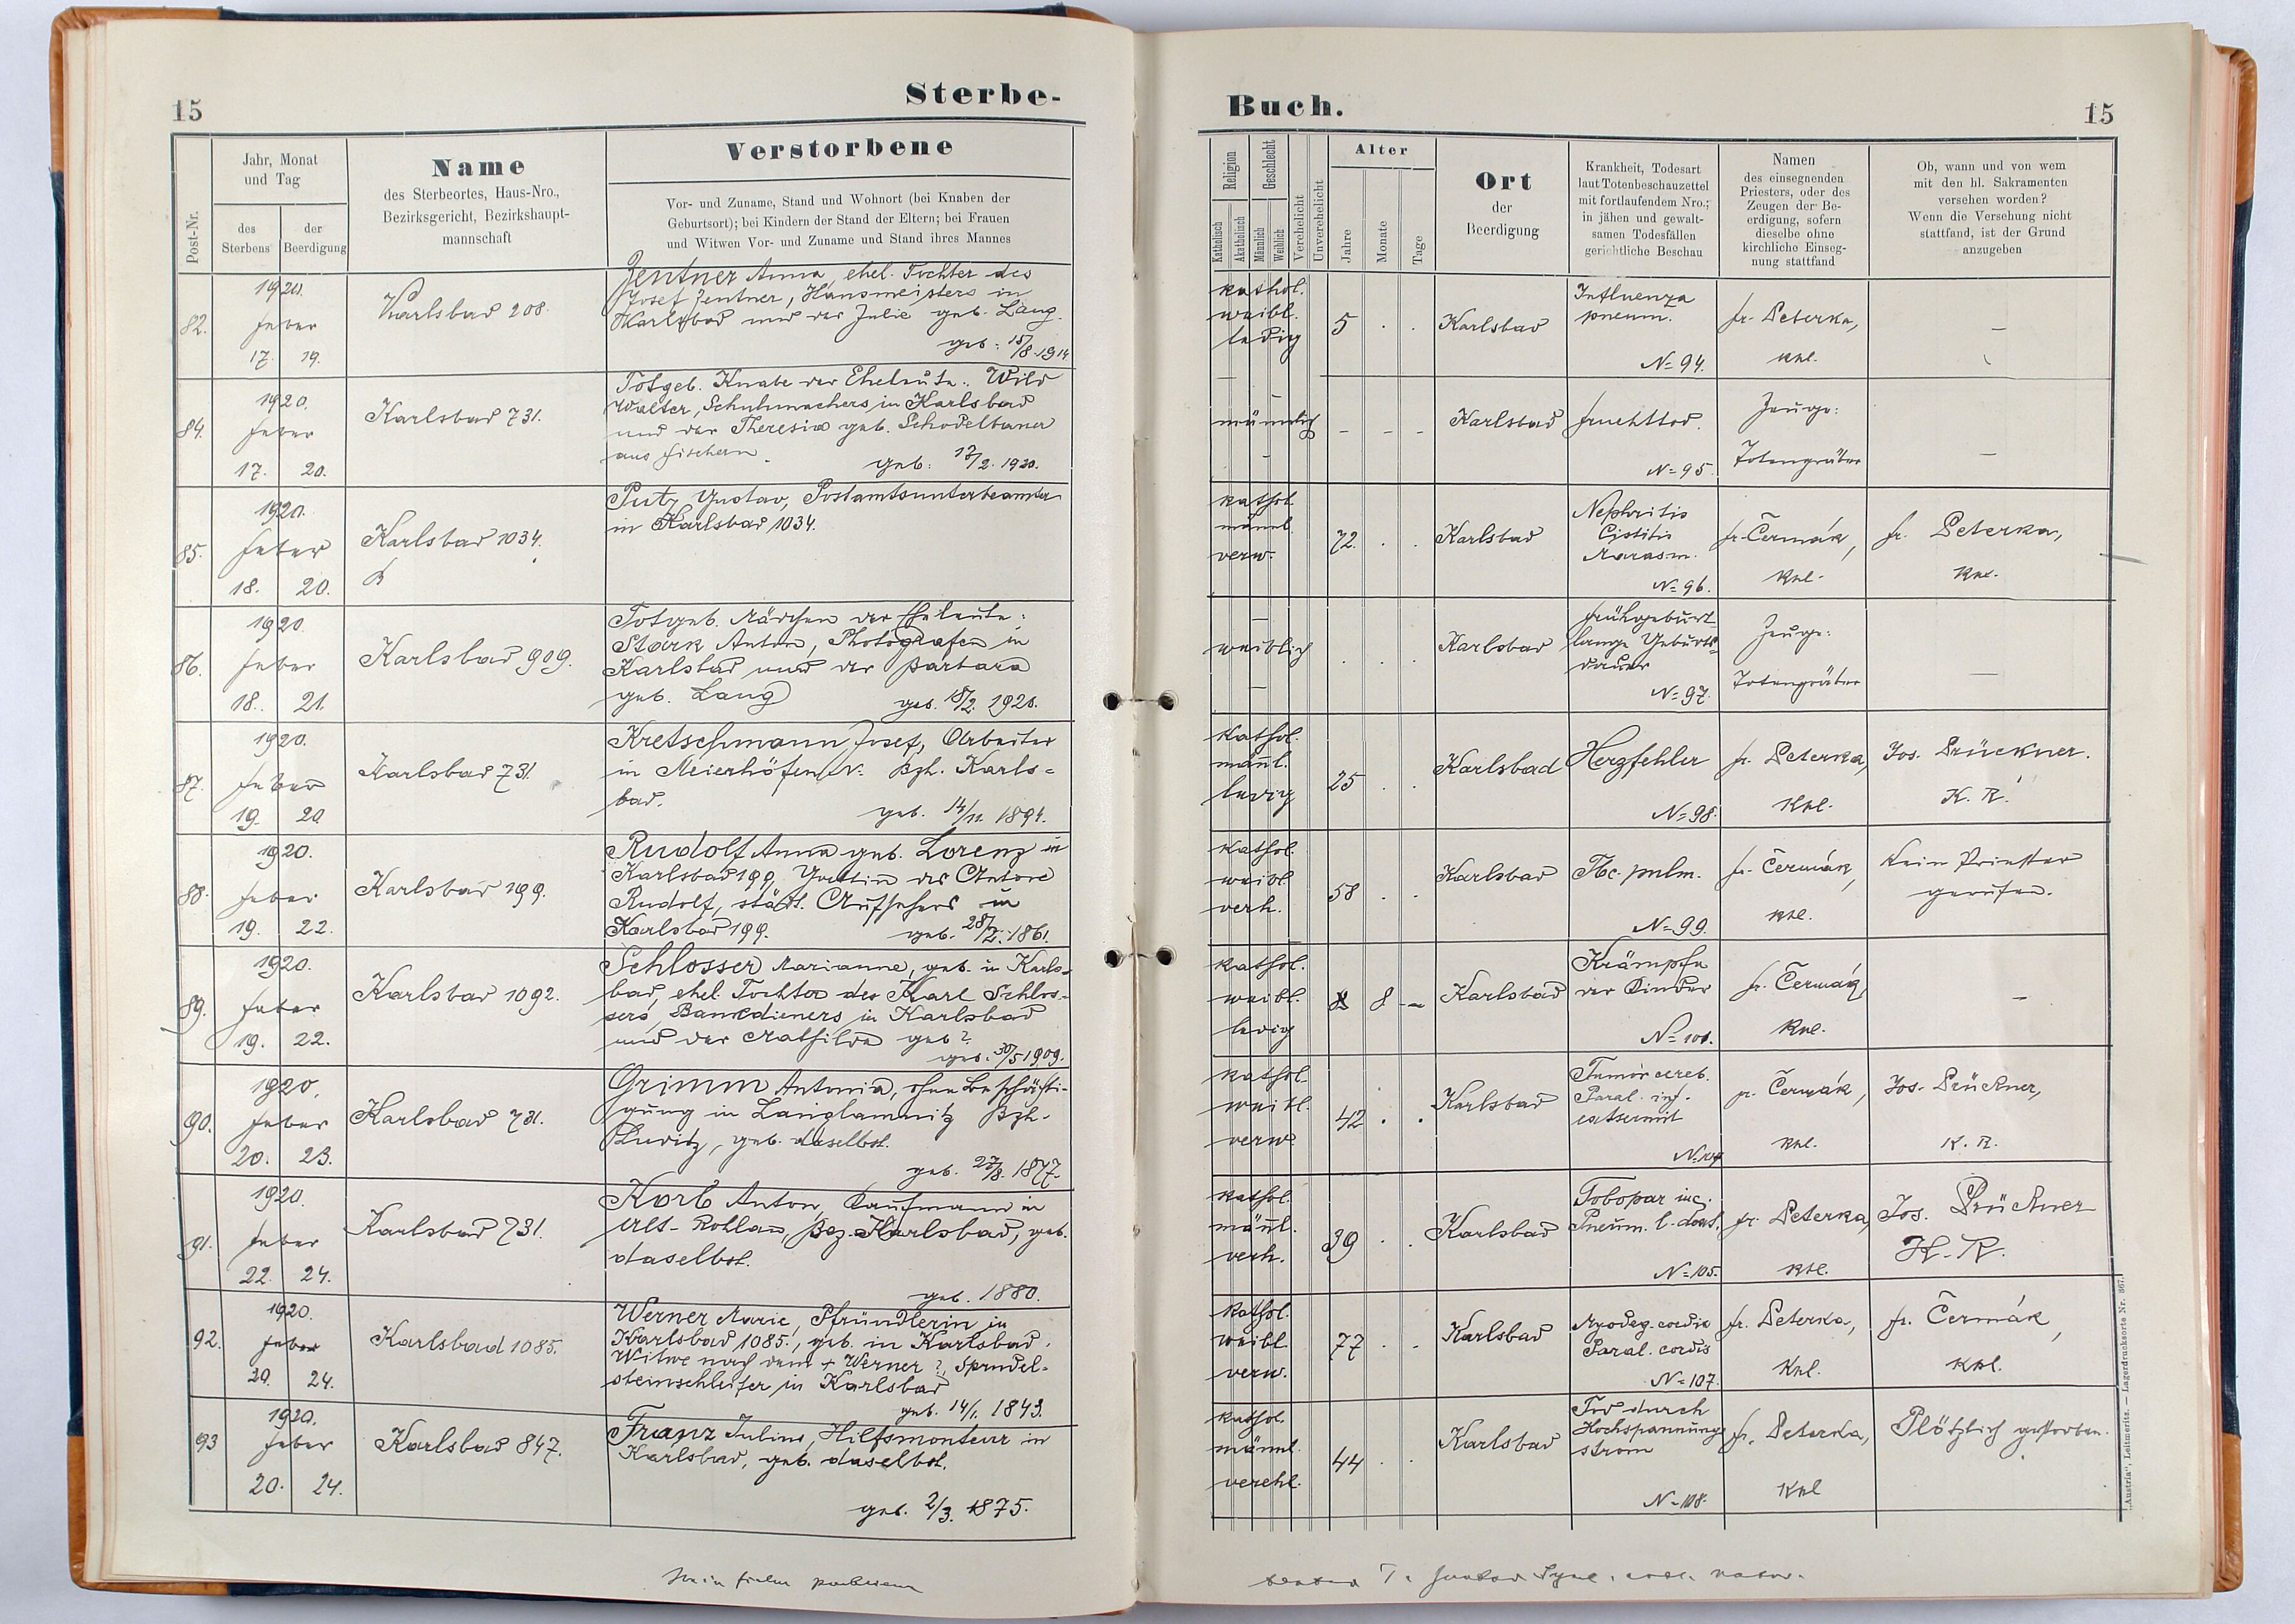 15
Sterbe-
Post-Nr.
Jahr, Monat
und Tag
des
Sterbens
der
Beerdigung
Name
des Sterbeortes, Haus-Nro.,
Bezirksgericht, Bezirkshaupt-
mannschaft
Verstorbene
Vor- und Zuname, Stand und Wohnort (bei Knaben der
Geburtsort); bei Kindern der Stand der Eltern; bei Frauen
und Witwen Vor- und Zuname und Stand ihres Mannes
82.
1920.
Feber
17. 19.
Karlsbad 208.
Zentner Anna, ehel. Tochter des
Josef Zentner, Hausmeisters in
Karlsbad und der Julie geb. Lang.
geb: 15/8 1914
84.
1920.
Feber
17. 20.
Karlsbad 731.
Totgeb. Knabe der Eheleute: Wild
Walter, Schuhmachers in Karlsbad
und der Theresia geb. Schodelbauer
aus Fischern.
geb: 17/2. 1920.
85.
1920.
Feber
18. 20.
Karlsbad 1034.
Putz Gustav, Postamtsunterbeamter
in Karlsbad 1034.
86.
1920
Feber
18. 21.
Karlsbad 909.
Totgeb. Mädchen der Eheleute:
Stark Anton, Photografen in
Karlsbad und der Barbara
geb. Lang
geb. 18/2. 1920.
87.
1920.
Feber
19. 20
Karlsbad 731.
Kretschmann Josef, Arbeiter
in Meierhöfen N: Bzh. Karls=
bad.
geb. 14/11. 1894.
88.
1920.
Feber
19. 22.
Karlsbad 199.
Rudolf Anna geb. Lorenz in
Karlsbad 199, Gattin des Anton
Rudolf, städt. Aufsehers in
Karlsbad 199.
geb. 28/2. 1861.
89.
1920.
Feber
19. 22.
Karlsbad 1092.
Schlosser Marianne, geb. in Karls=
bad, ehel. Tochter des Karl Schlos-
sers, Bankdieners in Karlsbad
und der Mathilde geb?
geb. 30/5 1909.
90.
1920.
Feber
20. 23.
Karlsbad 731.
Grimm Antonia, ohne Beschäfti-
gung in Langlamnitz Bzh.
Luditz, geb. daselbst.
geb. 27/8. 1877.
91.
1920.
Feber
22. 24.
Karlsbad 731.
Korb Anton, Kaufmann in
Alt-Rohlau, Bez. Karlsbad, geb.
daselbst.
geb. 1880.
92.
1920.
Feber
20. 24.
Karlsbad 1085.
Werner Marie, Pfründlerin in
Karlsbad 1085., geb. in Karlsbad.
Witwe nach dem + Werner ?, Sprudel-
steinschleifer in Karlsbad
geb. 14/1. 1843.
93
1920.
Feber
20. 24.
Karlsbad 847.
Franz Julius, Hilfsmonteur in
Karlsbad, geb. daselbst.
geb. 2/3. 1875.
Buch.
15
Religion
Katholisch
Akatholisch
Geschlecht
Männlich
Weiblich
Verehelicht
Unverehelicht
Alter
Jahre
Monate
Tage
Ort
der
Beerdigung
Krankheit, Todesart
laut Totenbeschauzettel
mit fortlaufendem Nro.;
in jähen und gewalt-
samen Todesfällen
gerichtliche Beschau
Namen
des einsegnenden
Priesters, oder des
Zeugen der Be-
erdigung, sofern
dieselbe ohne
kirchliche Einseg-
nung stattfand
Ob, wann und von wem
mit den hl. Sakramenten
versehen worden?
Wenn die Versehung nicht
stattfand, ist der Grund
anzugeben
kathol.
weibl.
ledig
5
Karlsbad
Influenza
pneum.
N=94.
fr. Peterka,
Kpl.
–
männlich
– – –
Karlsbad
Fruchttod.
N=95.
Zeuge:
Totengräber
–
kathol.
männl.
verw.
72.
Karlsbad
Nephritis
Cistitis
Marasm.
N=96.
fr. Čermák,
Kpl.
fr. Peterka,
Kpl.
–
weiblich
–
Karlsbad
Frühgeburt
lange Geburts=
dauer
N=97.
Zeuge:
Totengräber
–
Kathol.
männl.
ledig
25
Karlsbad
Herzfehler
N=98.
fr. Peterka,
Kpl.
Jos. Prückner.
K. R.
kathol.
weibl.
verh.
58
Karlsbad
Tbc. pulm.
N=99.
fr. Čermák,
Kpl.
Kein Priester
gerufen.
kathol.
weibl.
ledig
8 –
Karlsbad
Krämpfe
der Kinder
N=101.
fr. Čermák,
Kpl.
–
kathol.
weibl.
verw.
42
Karlsbad
Tumor cereb.
Paral. inf.
N=104
fr. Čermák,
Kpl.
Jos. Prückner,
K. R.
kathol.
männl.
verh.
39
Karlsbad
Pneum.
N=105.
fr. Peterka,
Kpl.
Jos. Prückner
K. R.
kathol.
weibl.
verw.
77
Karlsbad
Myodeg. cordis
Paral. cordis
N=107.
fr. Peterka,
Kpl.
fr. Čermák,
Kpl.
kathol.
männl.
verehl.
44
Karlsbad
Tod durch
Hochspannungs
strom
N=108.
fr. Peterka,
Kpl
Plötzlich gestorben.
„Austria", Leitmeritz. — Lagerdrucksorte Nr. 867.